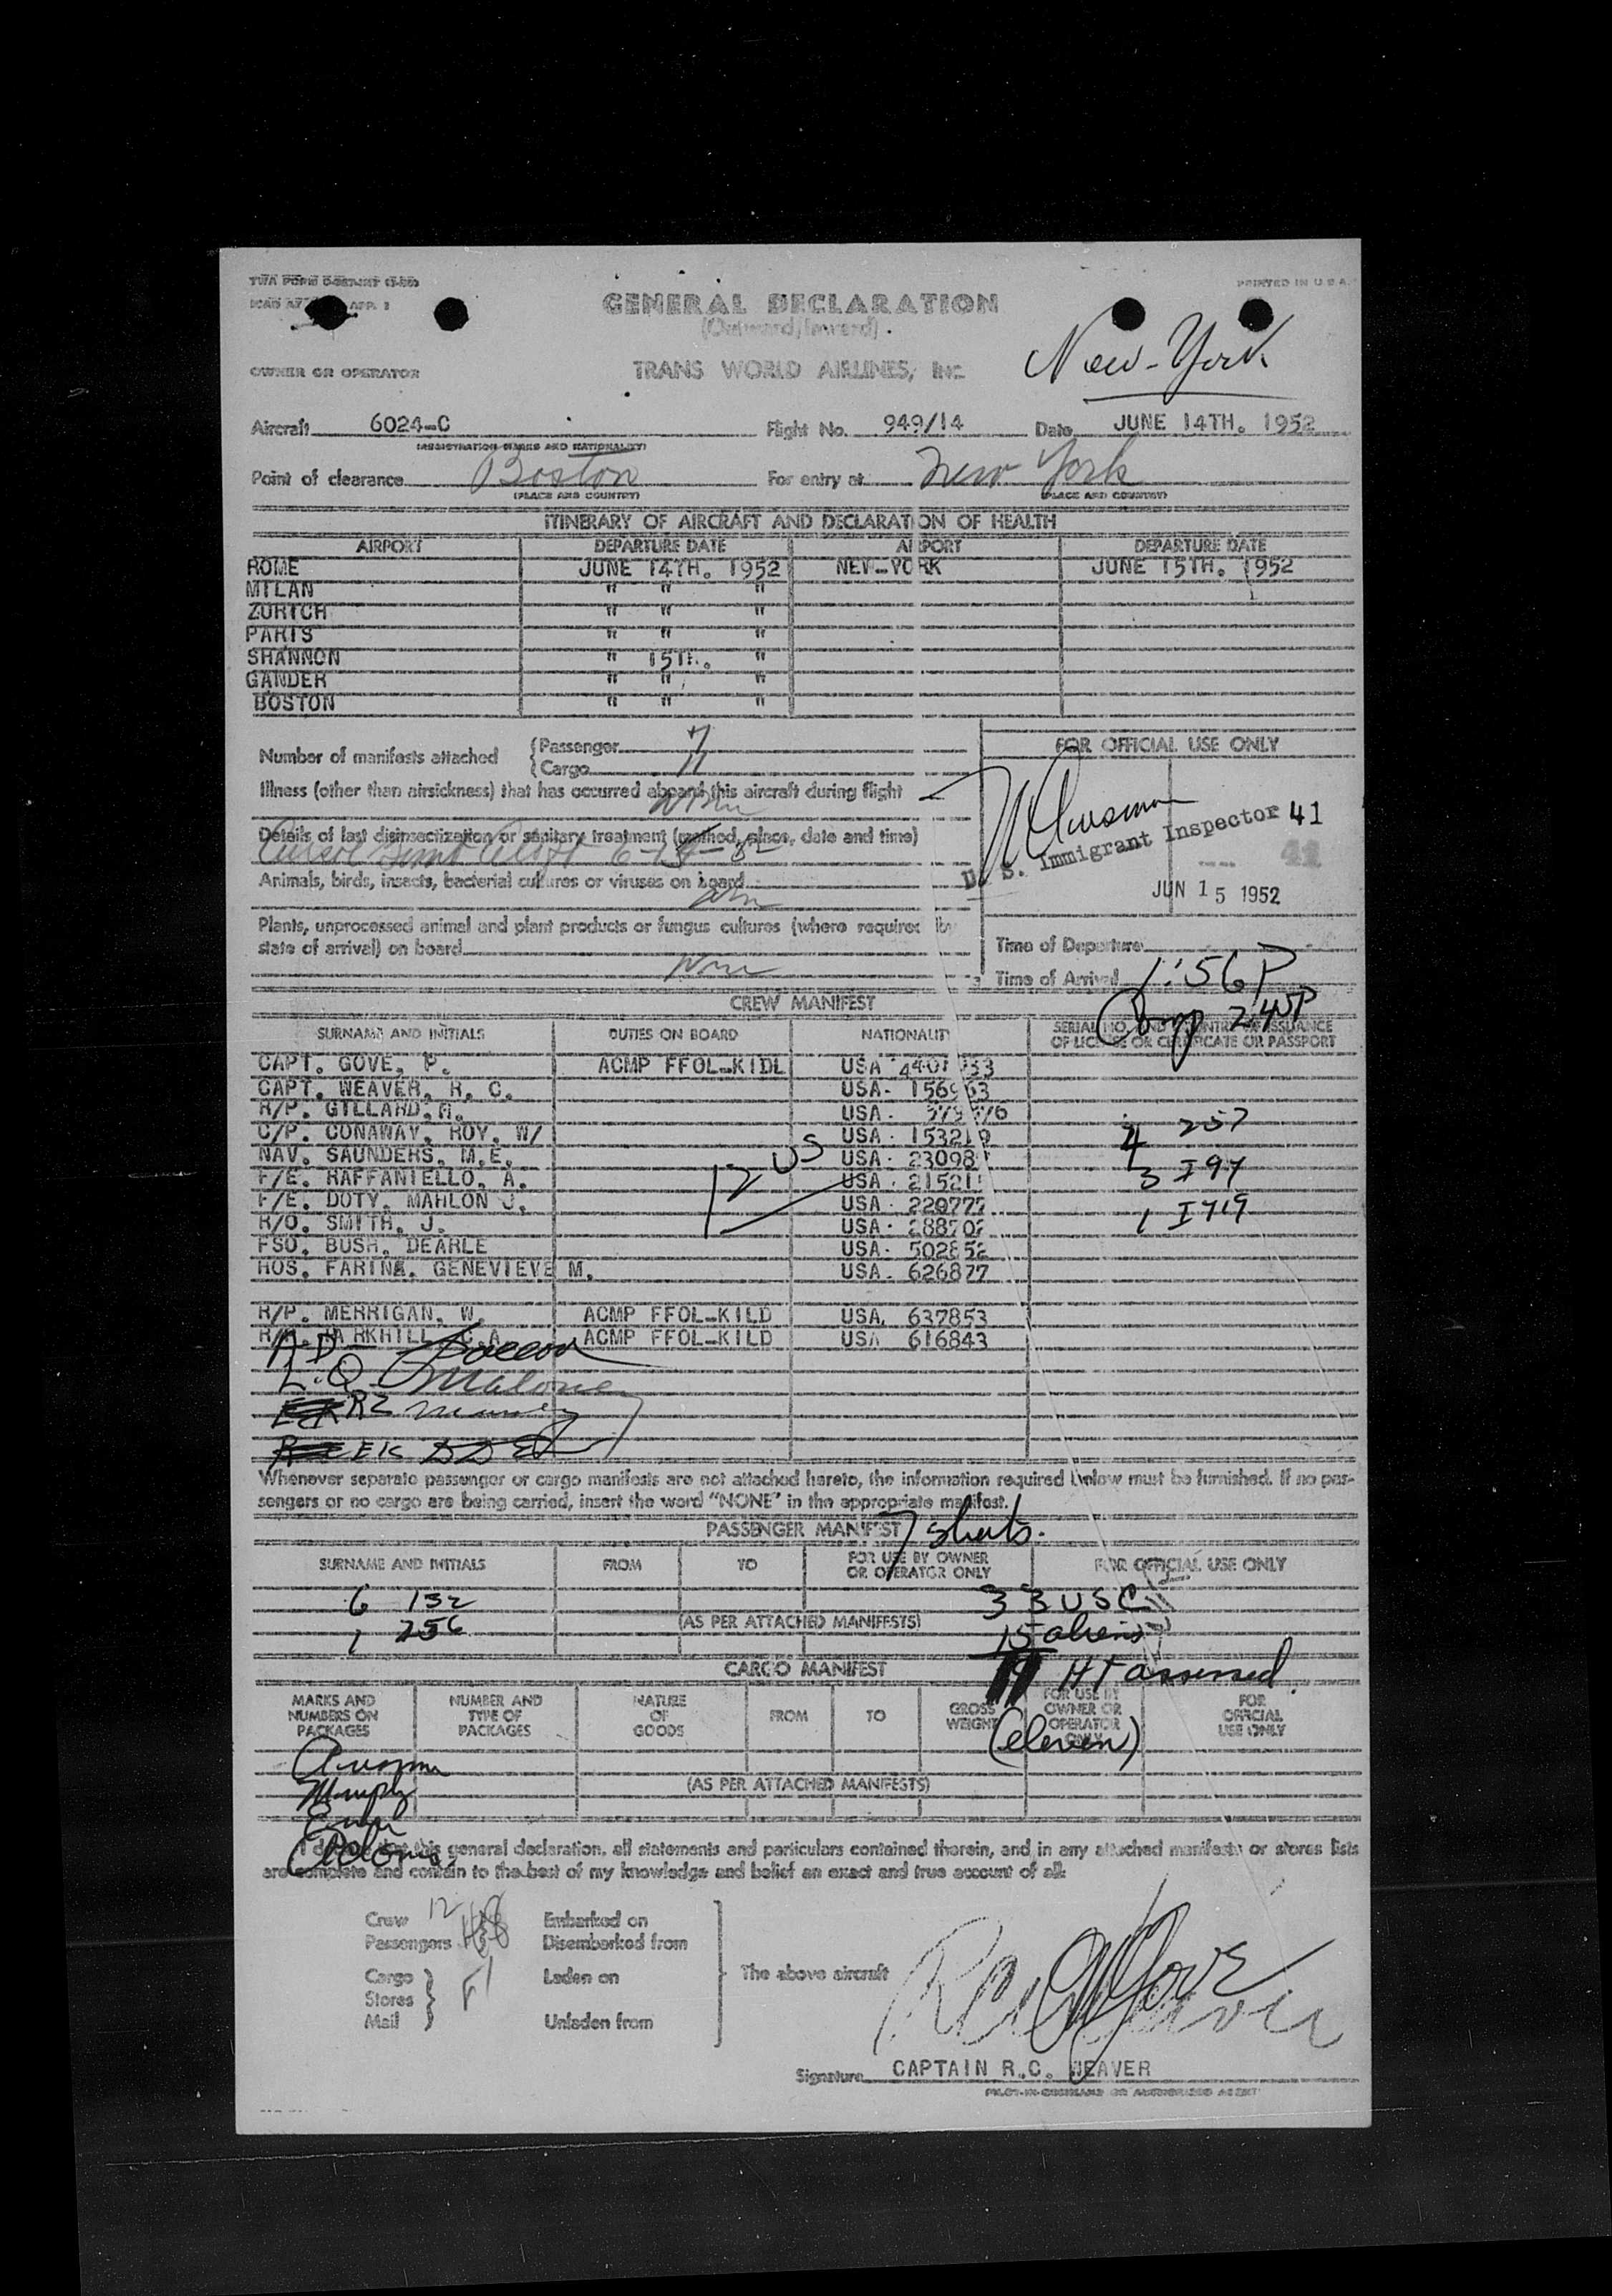 PRINTED IN U.S.A.
GENERAL DECLARATION
(Outward/Inward)
OWNER OR OPERATOR TRANS WORLD AIRLINES, INC. New-York
Aircraft 6024-C Flight No. 949/14 Date JUNE 14TH. 1952
(REGISTRATION MARKS AND NATIONALITY)
Point of clearance Boston For entry at New York
(PLACE AND COUNTRY) (PLACE AND COUNTRY)
ITINERARY OF AIRCRAFT AND DECLARATION OF HEALTH
AIRPORT DEPARTURE DATE AIRPORT DEPARTURE DATE
ROME JUNE 14TH. 1952 NEW-YORK JUNE 15TH. 1952
MILAN " " "
ZURICH " " "
PARIS " " "
SHANNON " 15TH. "
GANDER " " "
BOSTON " " "
Number of manifests attached {Passenger 7
{Cargo 11
FOR OFFICIAL USE ONLY
Illness (other than airsickness) that has occurred aboard this aircraft during flight
None
Details of last disinsectization or sanitary treatment (method, place, date and time)
U. S. Immigrant Inspector 41
41
JUN 15 1952
Animals, birds, insects, bacterial cultures or viruses on board
Plants, unprocessed animal and plant products or fungus cultures (where required by
state of arrival) on board
None
Time of Departure
Time of Arrival 1:56P
2:45P
CREW MANIFEST
SURNAME AND INITIALS DUTIES ON BOARD NATIONALITY SERIAL NO. AND COUNTRY OF ISSUANCE
OF LICENSE OR CERTIFICATE OR PASSPORT
CAPT. GOVE, P. ACMP FFOL-KIDL USA
CAPT. WEAVER, R. C. USA-
R/P. GILLARD, USA.
C/P. CONAWAY, ROY. W/ USA. 153219 4 257
NAV. SAUNDERS, M.E. USA. 3 I 94
F/E. RAFFANIELLO, A. 12 US USA.
F/E. DOTY, MAHLON J. USA. 1 I 419
R/O. SMITH, J. USA. 288702
FSO. BUSH, DEARLE USA. 502852
HOS. FARINA, GENEVIEVE M. USA. 626877
R/P. MERRIGAN, W. ACMP FFOL-KILD USA. 637853
ACMP FFOL-KILD USA 616843
L.Q. Maloney
Whenever separate passenger or cargo manifests are not attached hereto, the information required below must be furnished. If no pas-
sengers or no cargo are being carried, insert the word "NONE" in the appropriate manifest.
PASSENGER MANIFEST 7 sheets.
SURNAME AND INITIALS FROM TO FOR USE BY OWNER
OR OPERATOR ONLY FOR OFFICIAL USE ONLY
6 132 33 USC
1 256 (AS PER ATTACHED MANIFESTS) 15 aliens
CARGO MANIFEST 11 HT assessed.
(eleven)
MARKS AND
NUMBERS ON
PACKAGES NUMBER AND
TYPE OF
PACKAGES NATURE
OF
GOODS FROM TO GROSS
WEIGHT FOR USE BY
OWNER OR
OPERATOR
ONLY FOR
OFFICIAL
USE ONLY
Murphy
(AS PER ATTACHED MANIFESTS)
I declare that this general declaration, all statements and particulars contained therein, and in any attached manifests or stores lists
are complete and contain to the best of my knowledge and belief an exact and true account of all:
Crew 12 Embarked on
Passengers Disembarked from
Cargo Laden on The above aircraft
Stores
Mail Unladen from
Signature CAPTAIN R.C. WEAVER
PILOT-IN-COMMAND OR AUTHORIZED AGENT